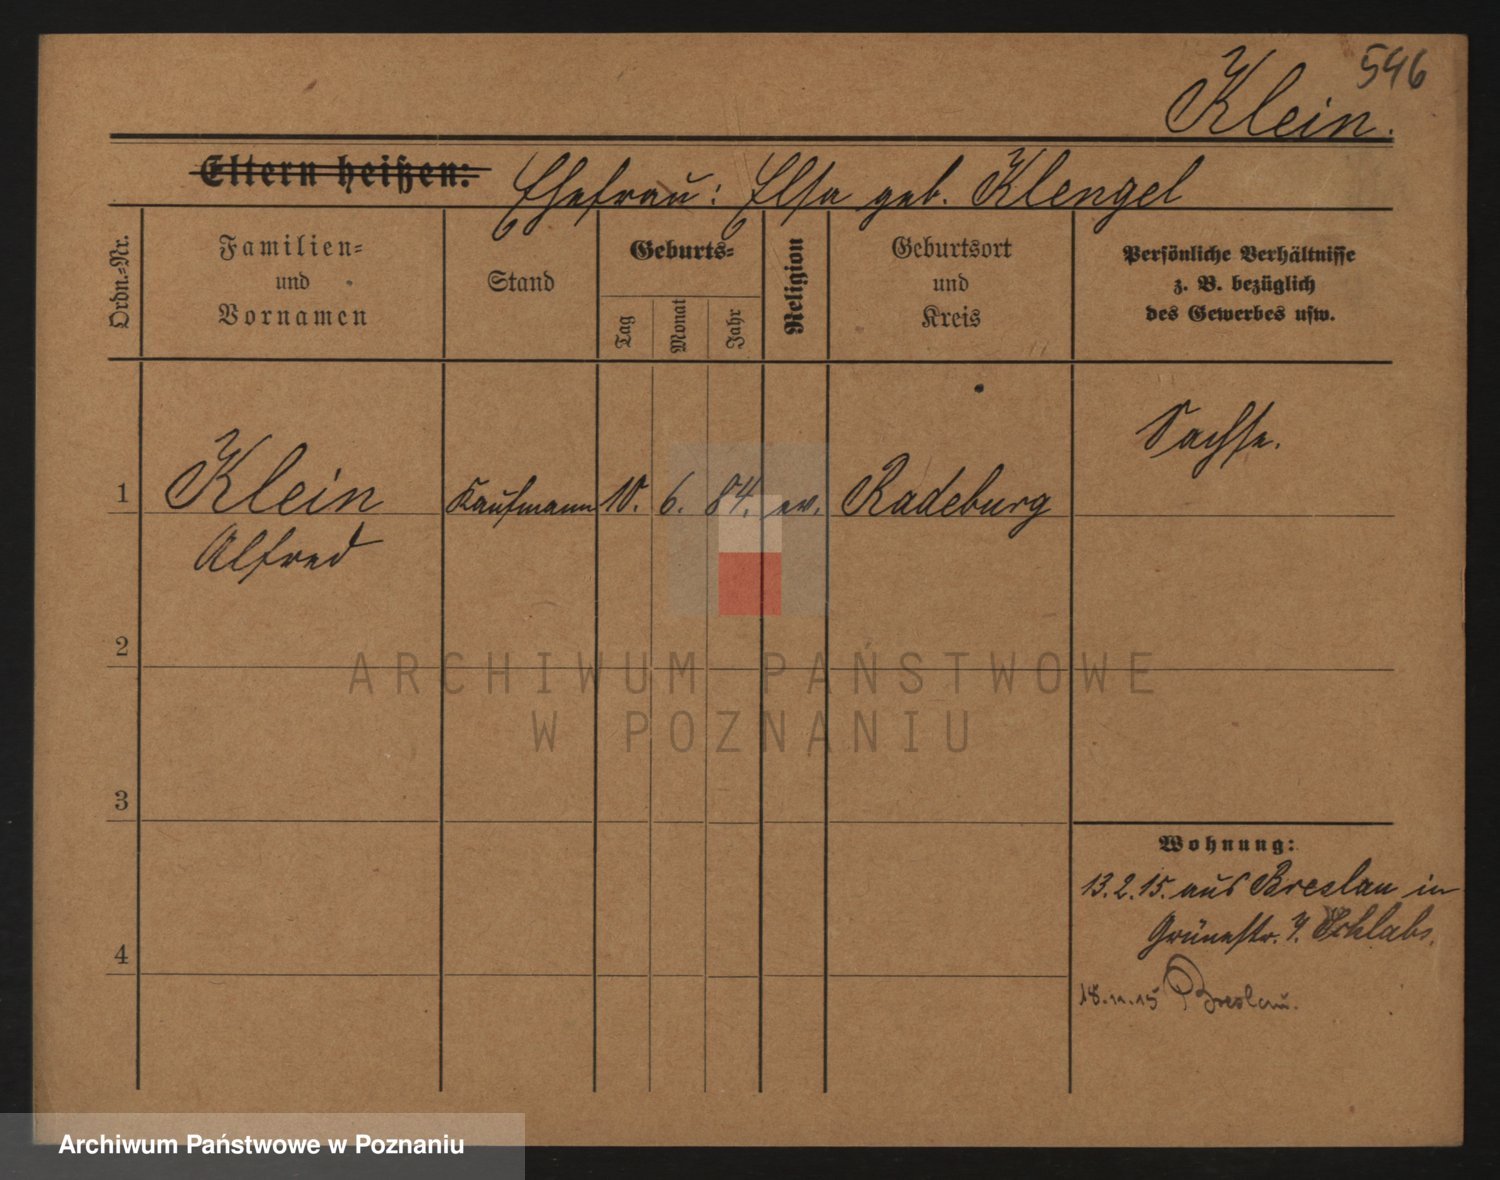 546
Klein.
Eltern heißen: Ehefrau: Elsa geb. Klengel
Ordn.=Nr.
Familien=
und
Vornamen
Stand
Geburts=
Tag
Monat
Jahr
Religion
Geburtsort
und
Kreis
Persönliche Verhältnisse
z. B. bezüglich
des Gewerbes usw.
Sachse.
1 Klein Kaufmann 10. 6. 84. ev. Radeburg
Alfred
2
3
4
Wohnung:
13.2.15. aus Breslau in
Grünestr. 7. Schlabs.
18.11.15 Breslau.
ARCHIWUM PAŃSTWOWE
W POZNANIU
Archiwum Państwowe w Poznaniu